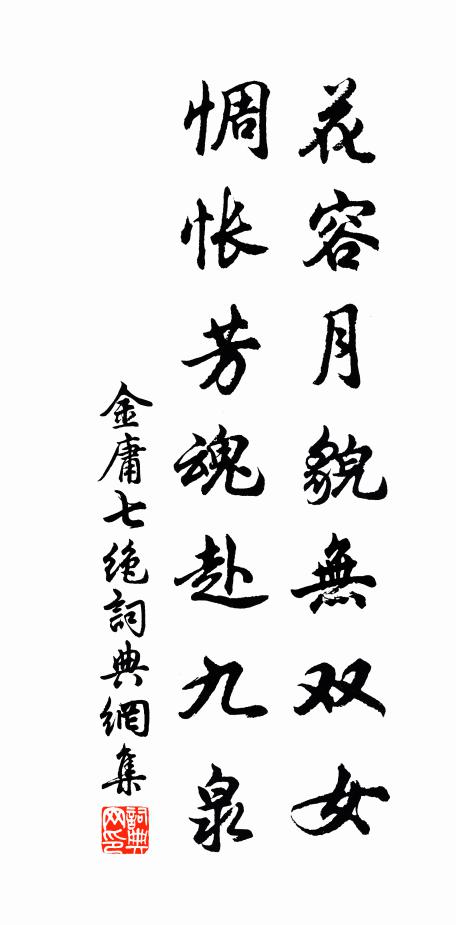 花容月貌無双女
惆怅芳魂赴九泉
金庸七绝詞典網集
詞典
网印